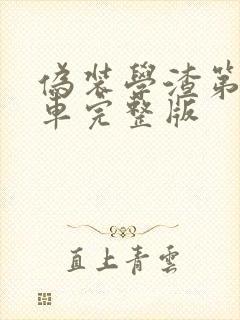 偽裝學渣第
車完整版
直上青雲